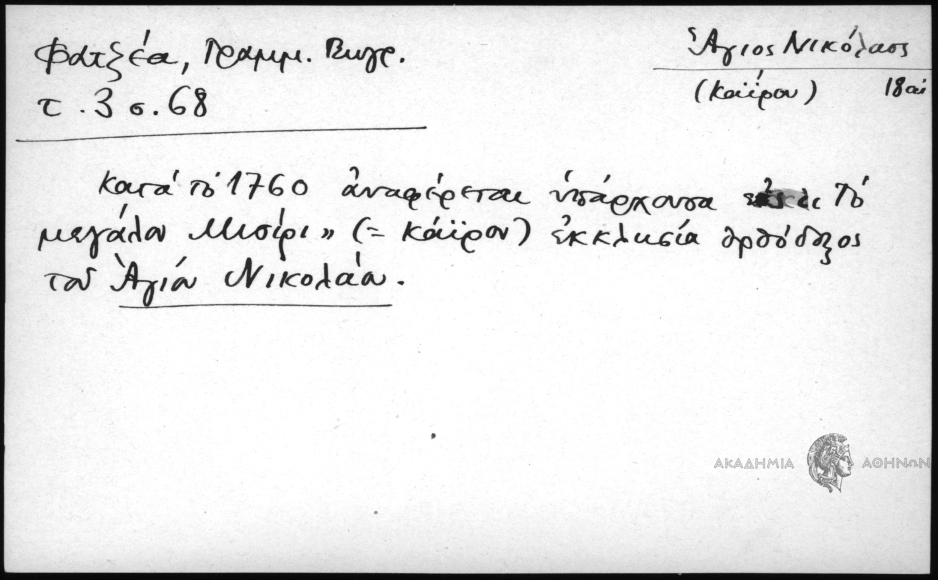 Φατζέα, Γραμμ. Βιογρ.
τ. 3 σ. 68
Ἅγιος Νικόλαος
(Καΐρου) 18 αἰ
Κατὰ τὸ 1760 ἀναφέρεται ὑπάρχουσα Τὸ
μεγάλου Μισίρι» (= Καΐρου) ἐκκλησία ὀρθόδοξος
τοῦ Ἁγίου Νικολάου.
ΑΚΑΔΗΜΙΑ ΑΘΗΝΩΝ